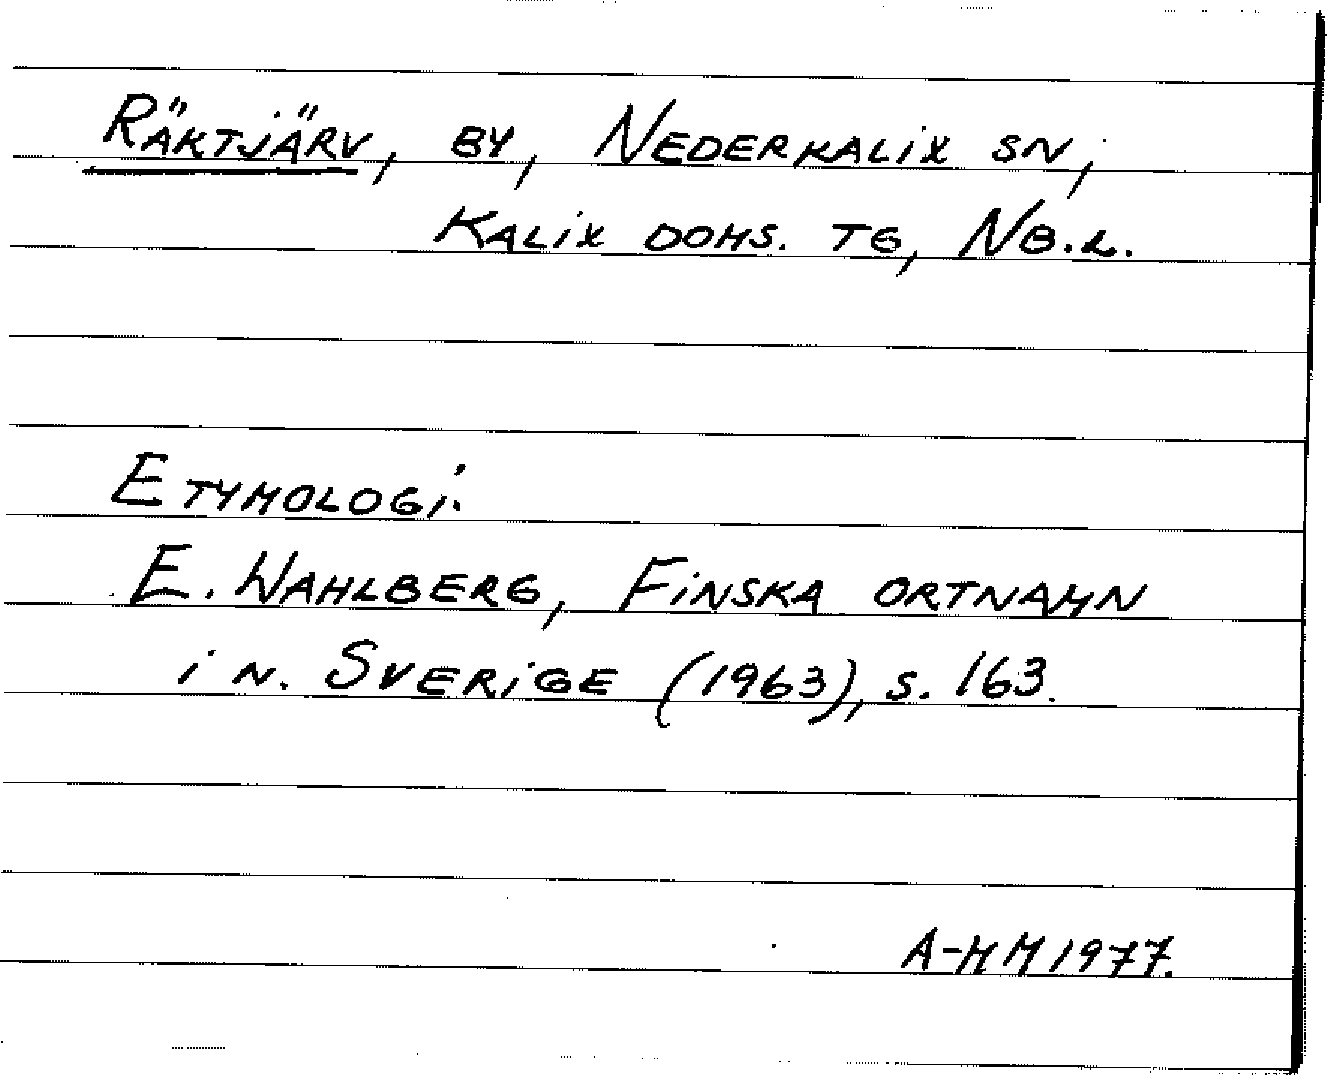 RÄKTJÄRV, BY, NEDERKALIX SN,
KALIX DOMS. TG, NB.L.
ETYMOLOGI:
E. WAHLBERG, FINSKA ORTNAMN
i N. SVERIGE (1963), S. 163.
A-MM 1977.